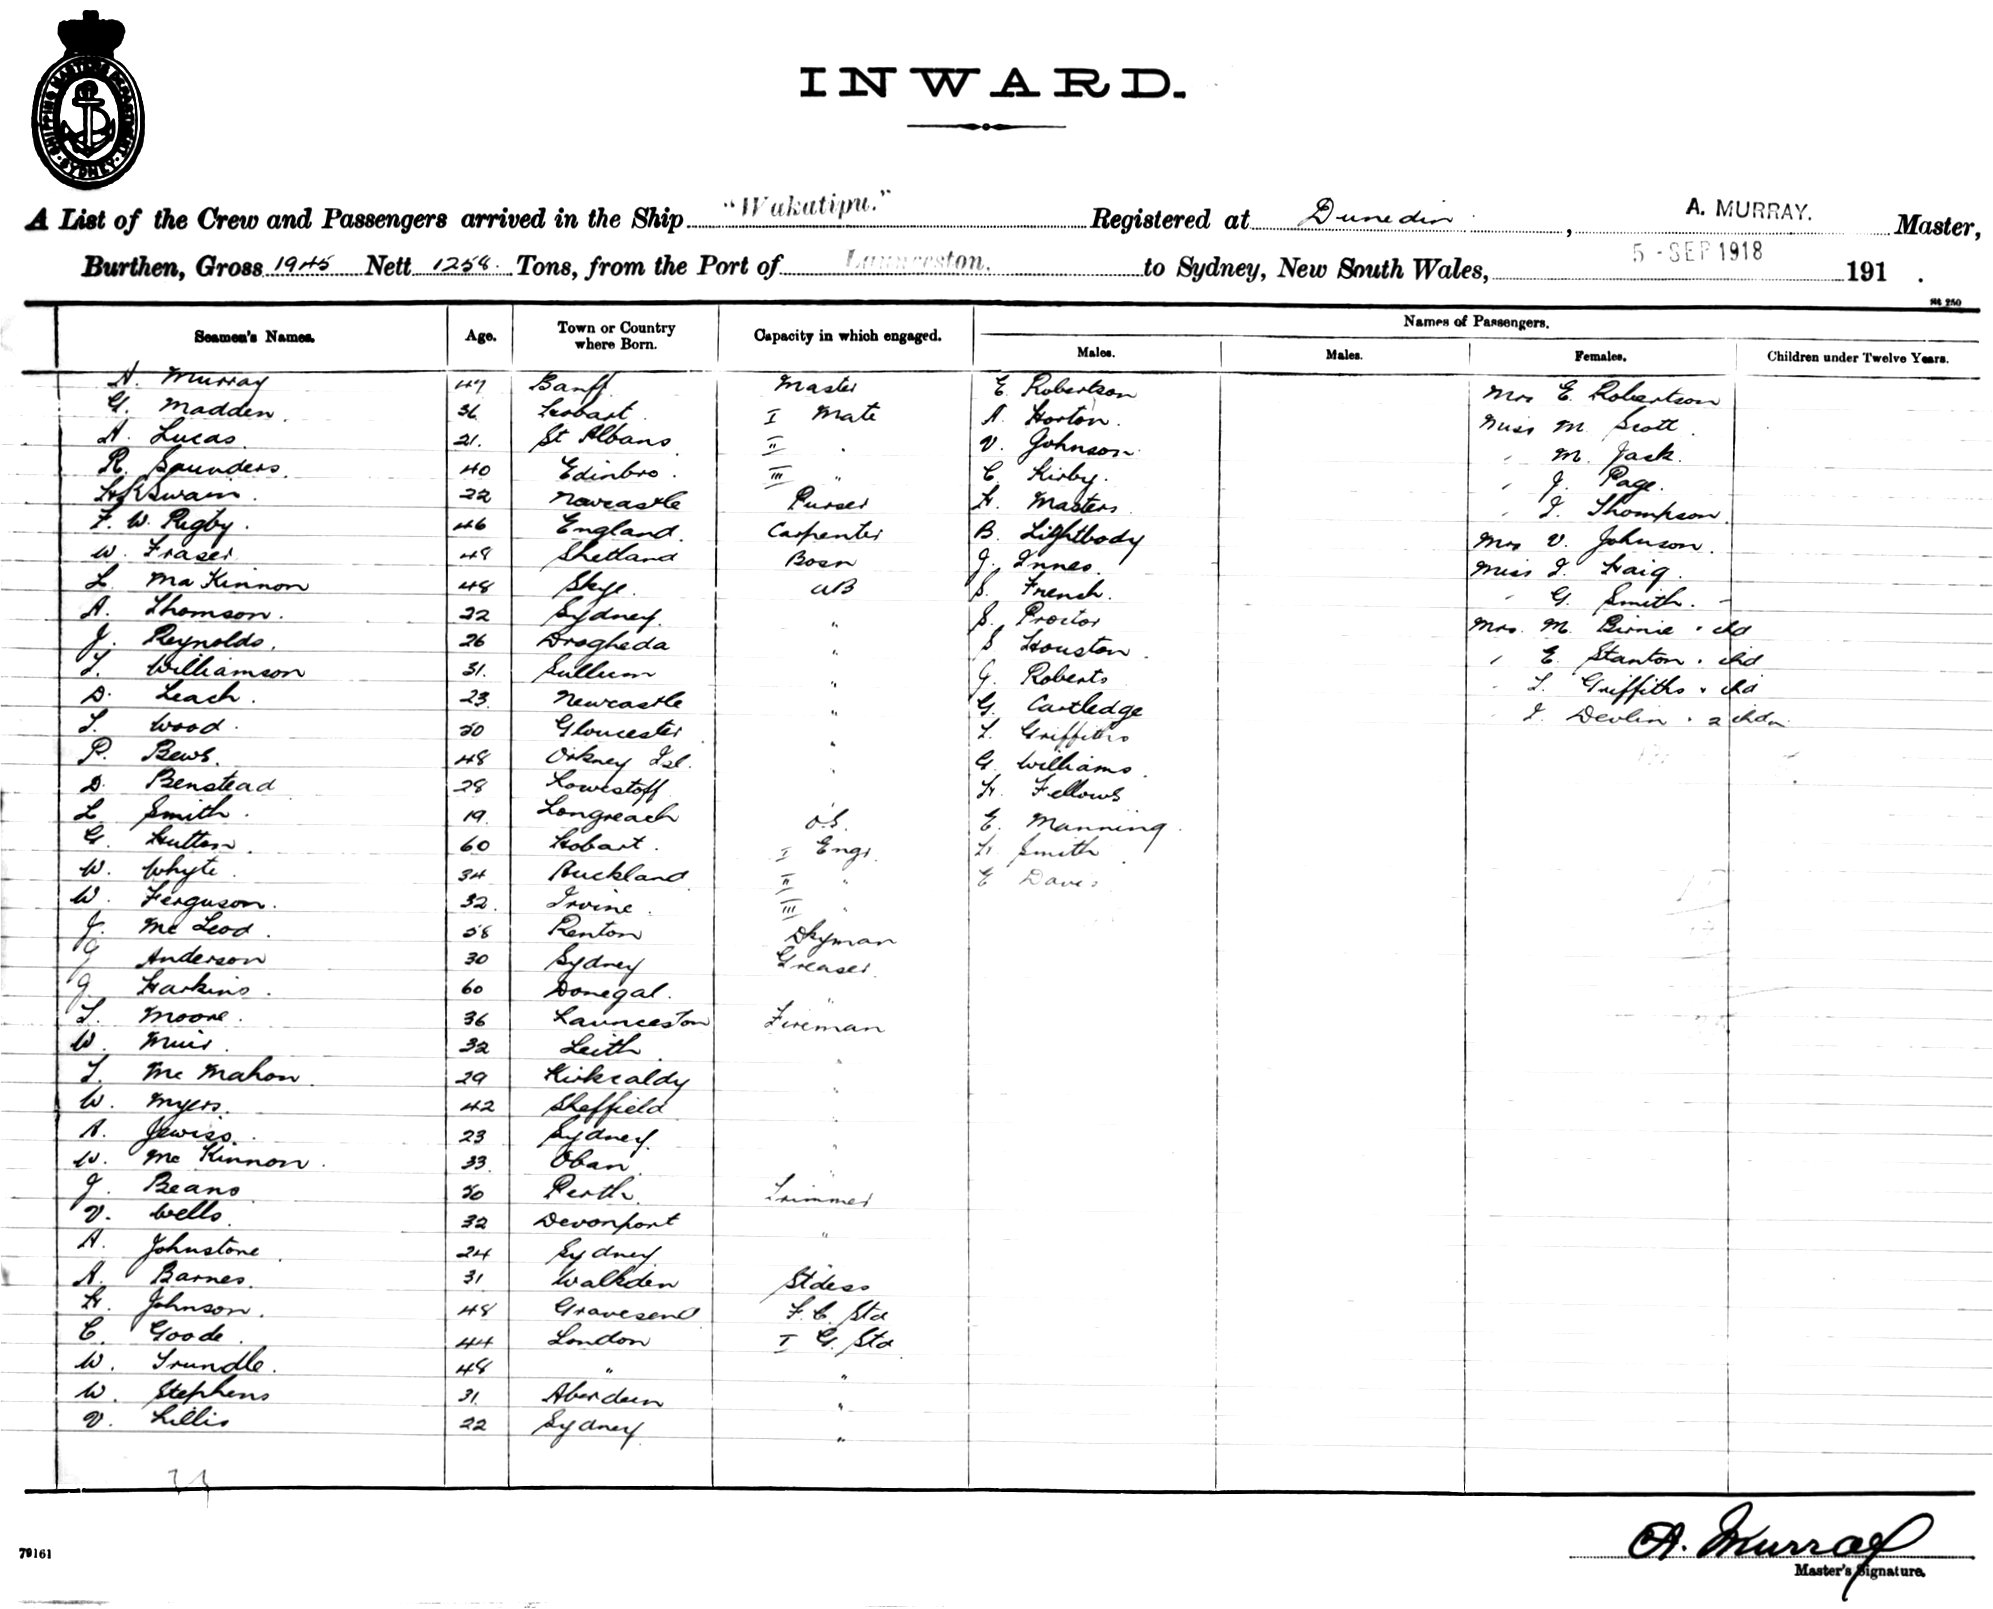 SHIPPING MASTERS DEPARTMENT SYDNEY
INWARD.
A List of the Crew and Passengers arrived in the Ship "Wakatipu." Registered at Dunedin, A. MURRAY. Master,
Burthen, Gross 1945 Nett 1258 Tons, from the Port of Launceston, to Sydney, New South Wales, 5 - SEP 1918 191 .
St 250
Seamen's Names. Age. Town or Country where Born. Capacity in which engaged. Names of Passengers.
Males. Males. Females. Children under Twelve Years.
A. Murray 47 Banff Master E. Robertson Mrs E. Robertson
G. Madden 36 Hobart I Mate A. Horton. Miss M. Scott
A. Lucas 21. St Albans II " V. Johnson " M. Jack
R. Saunders. 40 Edinbro. III " C. Kirby. " J. Page.
H. K Swain. 22 Newcastle Purser H. Masters " I. Thompson.
F. W. Rigby. 46 England. Carpenter B. Lightbody Mrs V. Johnson.
W. Fraser 48 Shetland Bosn J. Innes. Miss I. Haig.
L. MacKinnon 48 Skye. AB S. French. " G. Smith. -
A. Thomson. 22 Sydney. " S. Proctor Mrs. M. Birnie + chd
J. Reynolds. 26 Drogheda " S Houston. " E. Stanton + chd
T. Williamson 31. Sullum " G. Roberts " L. Griffiths + chd
D. Leach. 23. Newcastle " G. Cartledge " I. Devlin + 2 chdn
T. Wood. 50 Gloucester " L. Griffiths
P. Bews. 48 Orkney Isl. " G. Williams.
D. Benstead 28 Lowestoff " H. Fellows
L Smith. 19. Longreach O.S. E. Manning.
G. Hutton. 60 Hobart. I Engr. H. Smith
W. Whyte. 34 Auckland II " E Davis
W. Ferguson. 32. Irvine. III "
J. Mc Leod. 58 Renton Dkyman
J Anderson 30 Sydney Greaser.
J Harkins. 60 Donegal. "
T. Moore. 36 Launceston Fireman
W. Muir. 32 Leith. "
T. Mc Mahon. 29 Kirkcaldy "
W. Myers. 42 Sheffield "
A. Jewiss. 23 Sydney. "
W. Mc Kinnon. 33. Oban "
J. Beans 50 Perth. Trimmer
V. Wells. 32 Devonport "
A. Johnstone. 24 Sydney
A. Barnes. 31 Walkden Stdess
H. Johnson. 48 Gravesend F. C. Std
C. Goode. 44 London I G. Std
W. Trundle. 48 " "
W. Stephens 31. Aberdeen "
V. Lillis 22 Sydney. "
A. Murray
Master's Signature.
79161